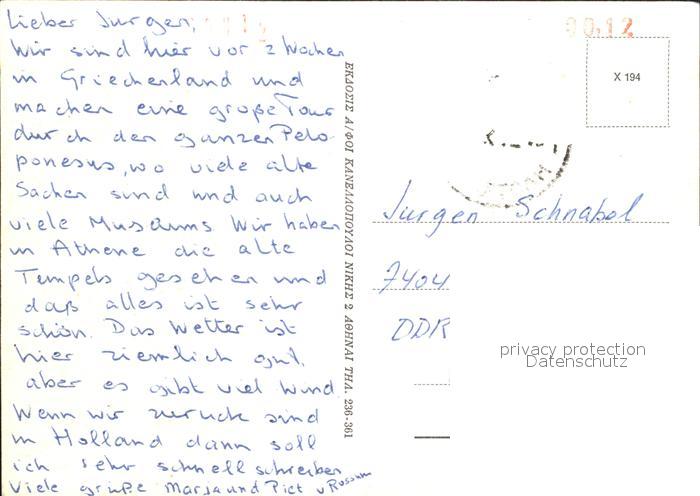 Lieber Jurgen,
Wir sind hier vor 2 Wochen
in Griechenland und
machen eine große Tour
durch den ganzen Pelo
ponesus, wo viele alte
Sachen sind und auch
viele Museums Wir haben
in Athene die alte
Tempels gesehen und
daß alles ist sehr
schön. Das Wetter ist
hier ziemlich gut,
aber es gibt viel Wind.
Wenn wir zuruck sind
in Holland dann soll
ich sehr schnell schreiben
Viele grüße Marja und Piet v Rossum
ΕΚΔΟΣΙΣ Α/ΦΟΙ ΚΑΝΕΛΛΟΠΟΥΛΟΙ ΝΙΚΗΣ 2 ΑΘΗΝΑΙ ΤΗΛ. 236-361
00.12
X 194
Jurgen Schnabel
7404
DDR
privacy protection
Datenschutz